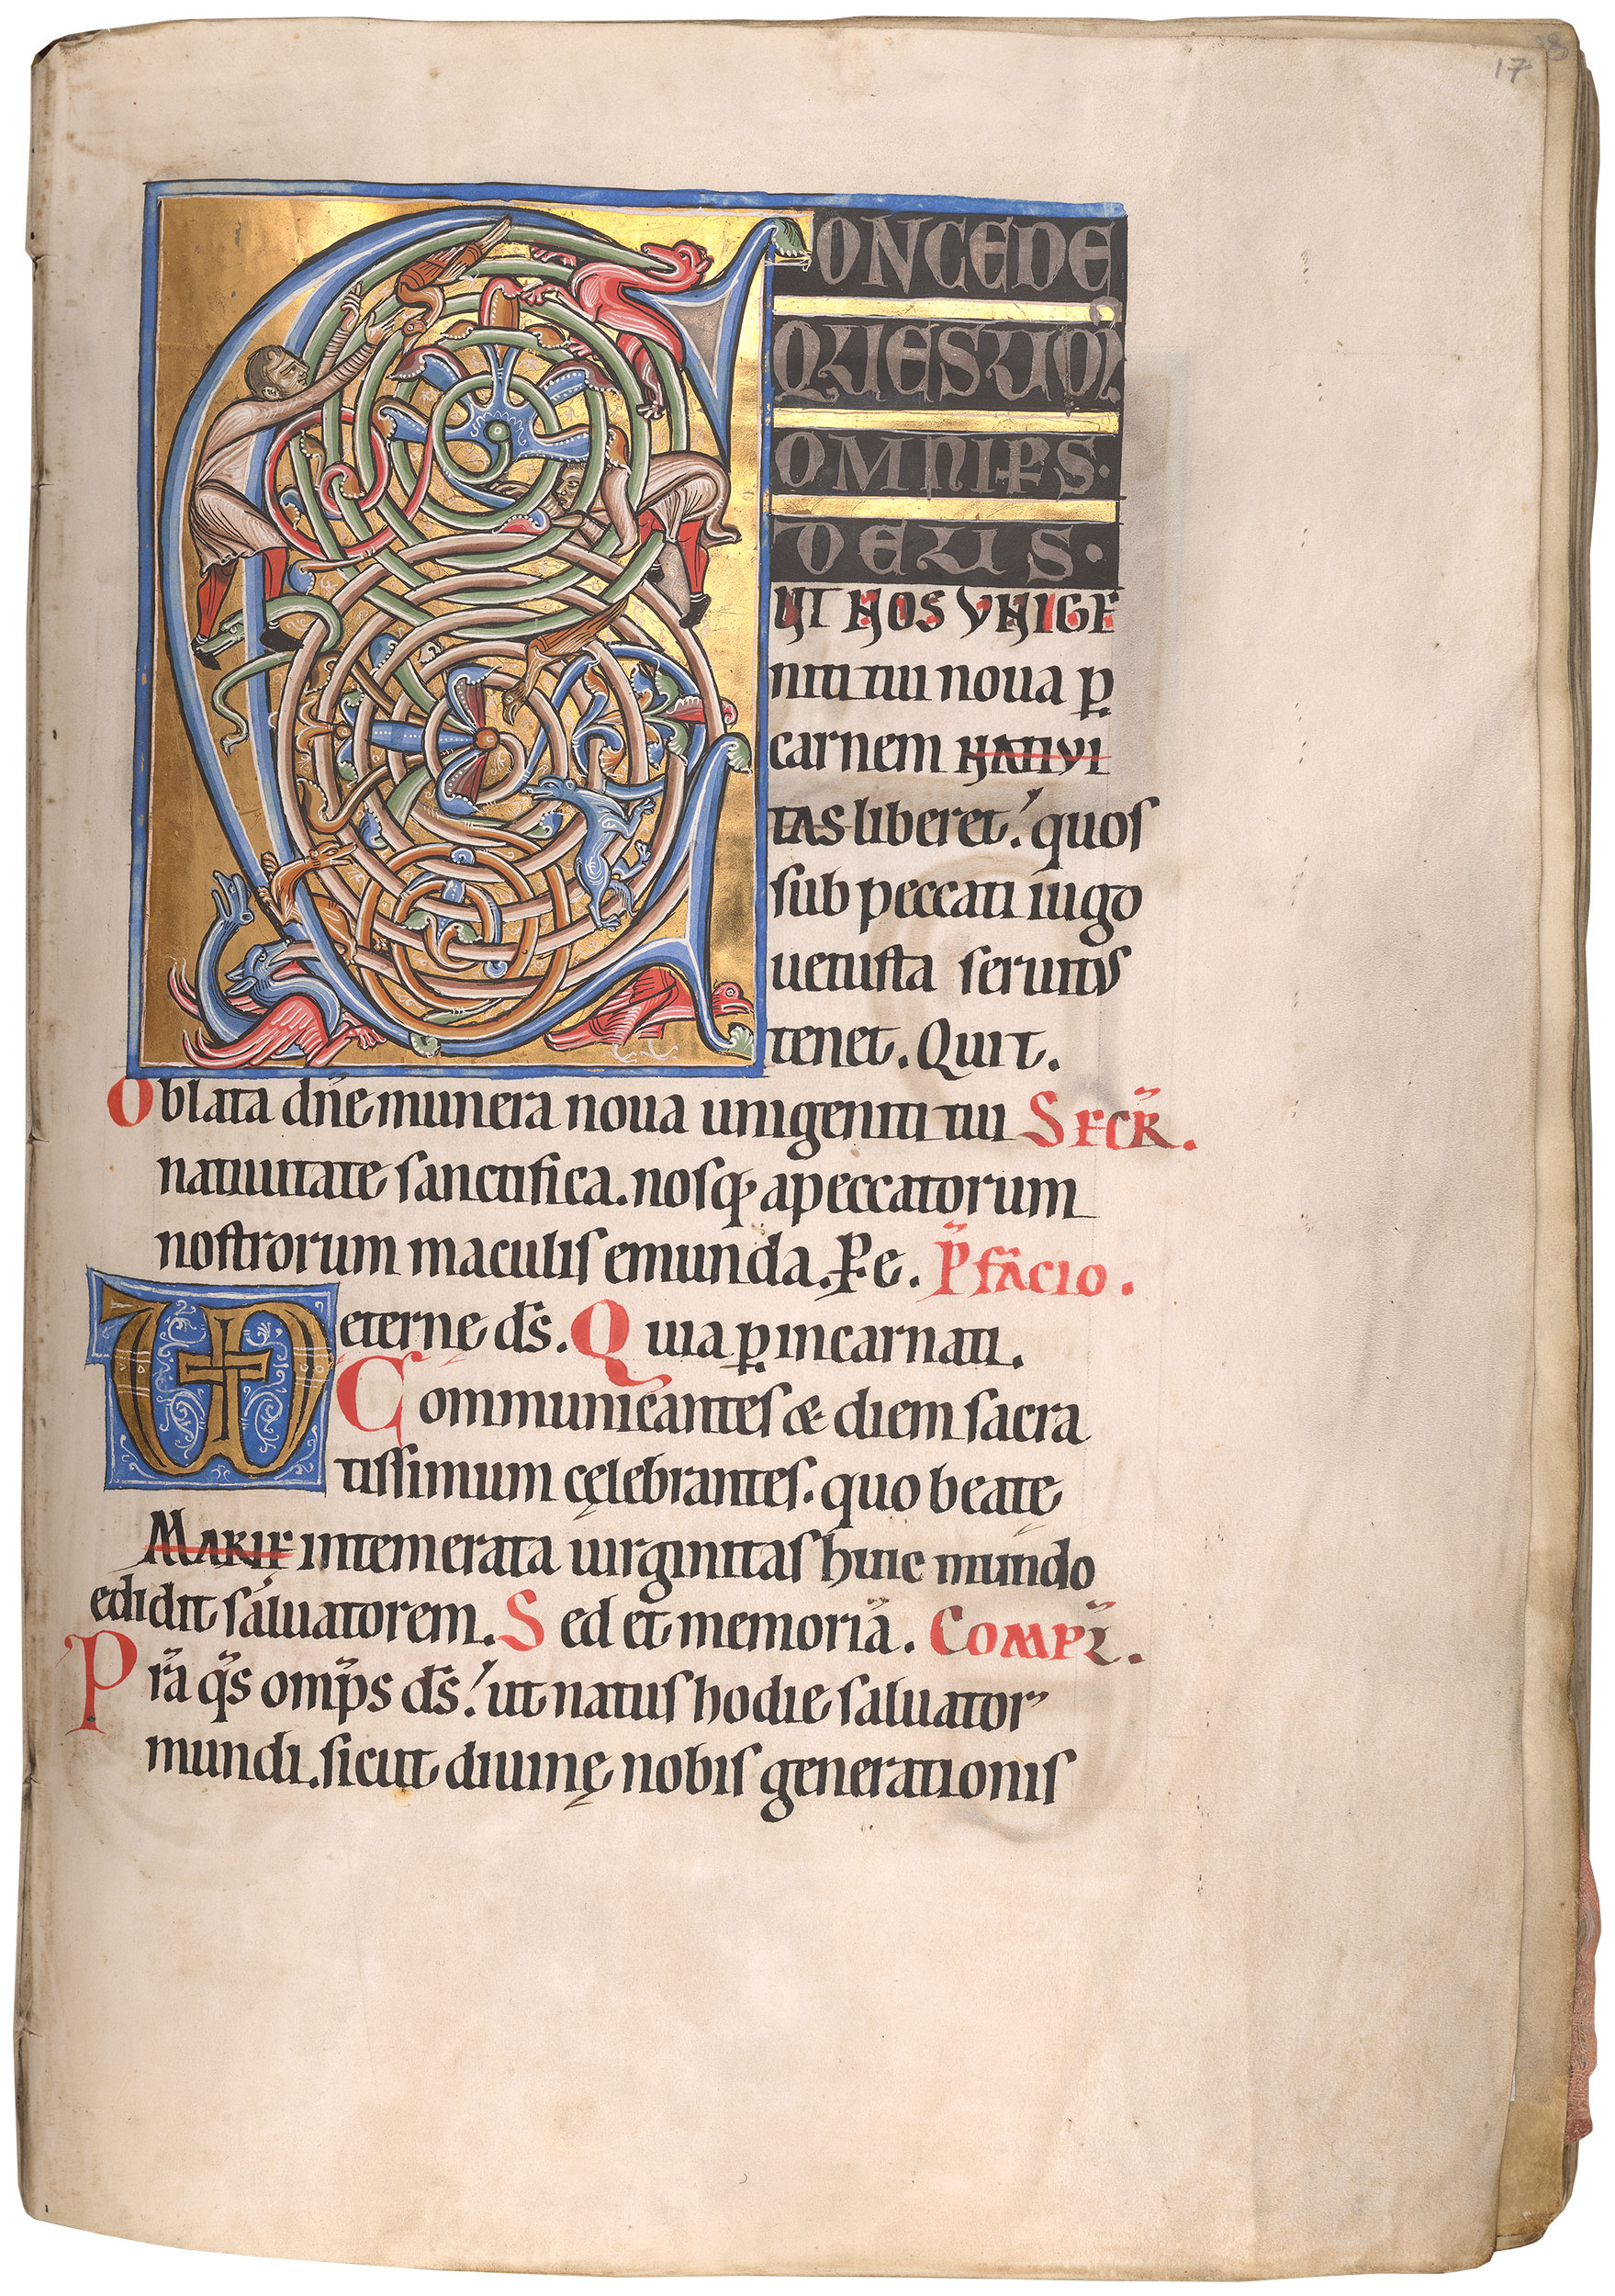 17
CONCEDE
QUESUM
OMNIPS·
DEUS·
UT NOS UNIGE
niti tui noua p̱
carnem NATIVI
TAS liberet. quos
sub peccati iugo
uetusta seruitus
tenet. Quit.
Oblata dn̄e munera noua unigeniti tui SECR̄.
natiuitate sanctifica. nosq; apeccatorum
nostrorum maculis emunda. Pe. P̄facio.
VD eterne ds̄. Quia p̱ incarnati.
Communicantes & diem sacra
tissimum cęlebrantes. quo beatę
MARIE intemerata uirginitas huic mundo
edidit saluatorem. Sed et memoriā. COMPL̄.
Pr̄a qs̄ omp̄s ds̄. ut natus hodie saluator
mundi. sicut diuinę nobis generationis